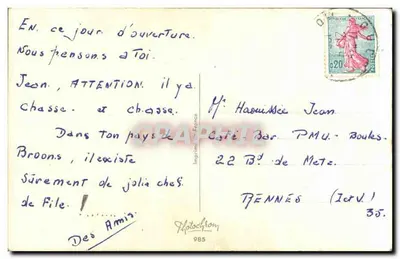 En ce jour d'ouverture.
Nous pensons à Toi.
Jean, ATTENTION. il y a
chasse. et chasse.
Dans ton pays de
Broons, il existe
sûrement de jolis chefs
de File !
Des Amis
Mr Jean
Café Bar PMU - Boules
22 Bd de Metz
RENNES (I et V)
35.
0,20
Photochrom
985